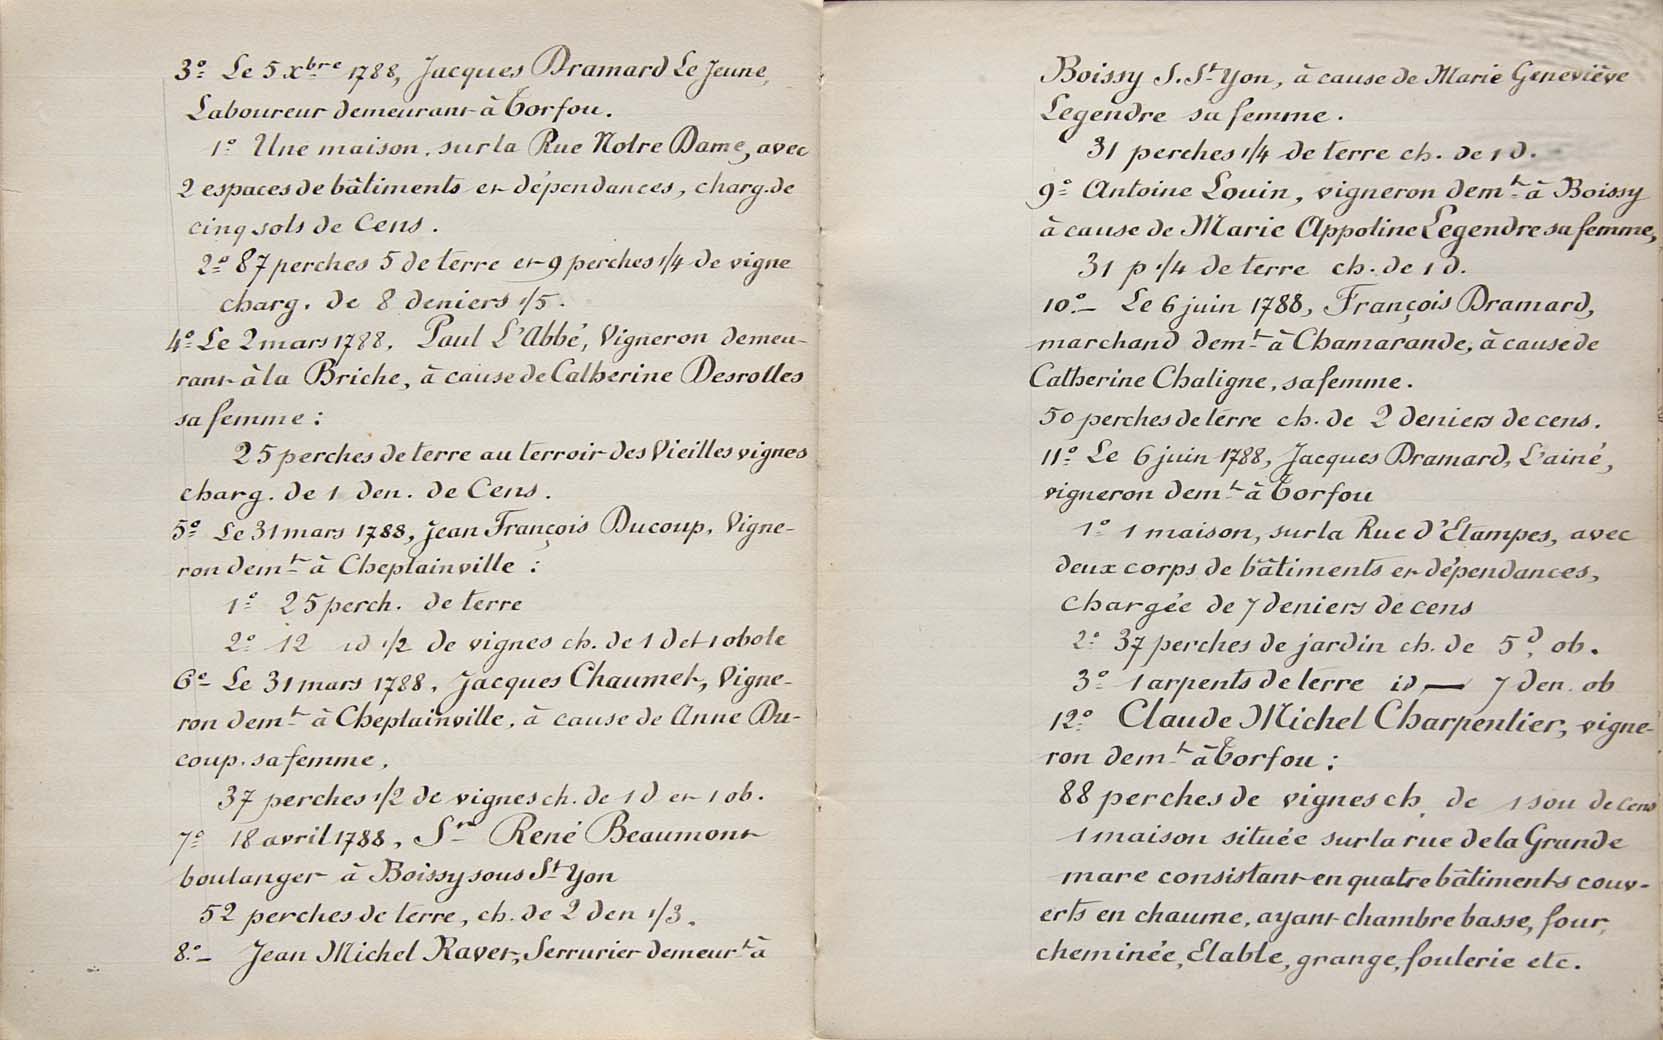 3º Le 5 Xbre 1788, Jacques Dramard Le Jeune,
Laboureur demeurant à Torfou.
1º Une maison, sur la Rue Notre Dame, avec
2 espaces de bâtiments et dépendances, charg. de
cinq sols de Cens.
2º 87 perches 5 de terre et 9 perches 1/4 de vigne
charg. de 8 deniers 1/5.
4º Le 2 mars 1788. Paul L'Abbé, Vigneron demeu-
rant à la Briche, à cause de Catherine Desrolles
sa femme :
25 perches de terre au terroir des Vieilles vignes
charg. de 1 den. de Cens.
5º Le 31 mars 1788, Jean François Ducoup, Vigne-
ron demt à Cheptainville :
1º 25 perch. de terre
2º 12 id 1/2 de vignes ch. de 1 d et 1 obole
6º Le 31 mars 1788, Jacques Chaumet, Vigne-
ron demt à Cheptainville, à cause de Anne Du-
coup. sa femme.
37 perches 1/2 de vignes ch. de 1 d et 1 ob.
7º 18 avril 1788, Sr René Beaumont
boulanger à Boissy sous St Yon
52 perches de terre, ch. de 2 den 1/3.
8º- Jean Michel Ravet, Serrurier demeurt à
Boissy S. St Yon, à cause de Marie Geneviève
Legendre sa femme.
31 perches 1/4 de terre ch. de 1 d.
9º Antoine Louin, vigneron demt à Boissy
à cause de Marie Appoline Legendre sa femme,
31 p 1/4 de terre ch. de 1 d.
10º- Le 6 juin 1788, François Dramard,
marchand demt à Chamarande, à cause de
Catherine Chaligne, sa femme.
50 perches de terre ch. de 2 deniers de cens.
11º Le 6 juin 1788, Jacques Dramard, L'ainé,
vigneron demt à Torfou
1º 1 maison, sur la Rue d'Etampes, avec
deux corps de bâtiments et dépendances,
chargée de 7 deniers de cens
2º 37 perches de jardin ch. de 5 d. ob.
3º 1 arpents de terre id — 7 den. ob
12º Claude Michel Charpentier, vigne-
ron demt à Torfou :
88 perches de vignes ch. de 1 sou de cens
1 maison située sur la rue de la Grande
mare consistant en quatre bâtiments couv-
erts en chaume, ayant chambre basse, four,
cheminée, Etable, grange, foulerie etc.